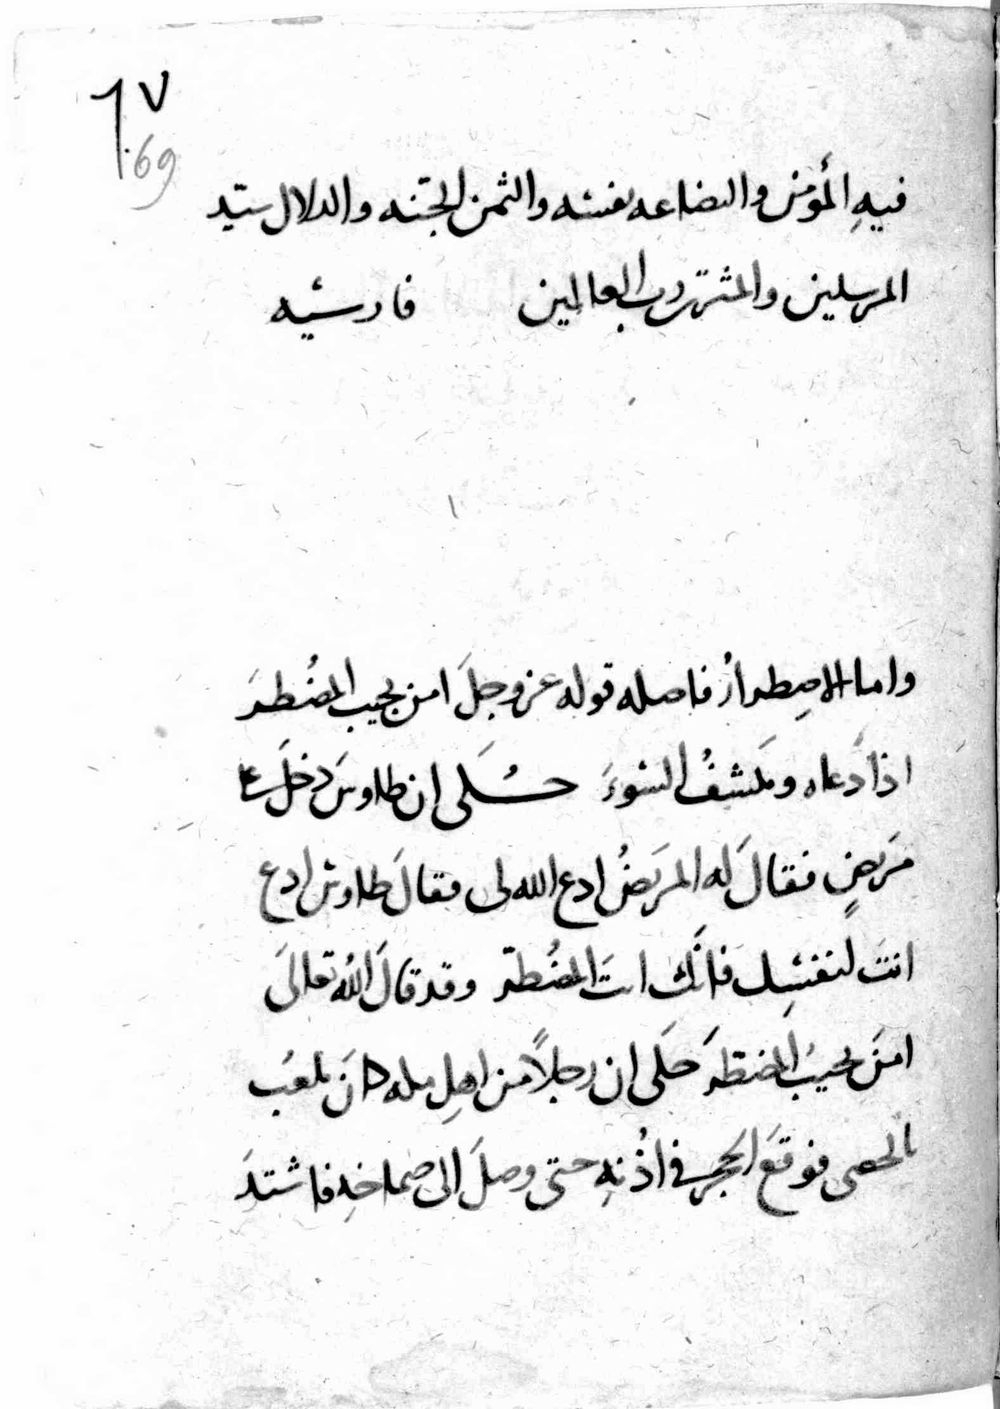 ٦٧
69
فيهِ المؤمن والبضاعه نفسه والثمن الجنه والدلال سيّد
المرسلين والمشتري رب العالمين فارسيه
واما الاضطرارُ فاصله قوله عز وجلَ امن يجيب المضُطرَ
اذا دَعاه ويكشفُ السُوءَ حُكى ان طاوسَ دخلَ على
مَريضٍ فقالَ له المريضُ ادع الله لى فقالَ طاوس ادع
انتَ لنفسِك فانَّك انتَ المضُطرّ وقد قالَ اللهُ تعالىَ
امنَ يجيبُ المضطرَ حكَى ان رجلاً من اهلِ مكه كانَ يلعبُ
بالحصى فوقعَ الحجر فى اذُنهِ حتى وصلَ الى صماخهِ فاشتدَ